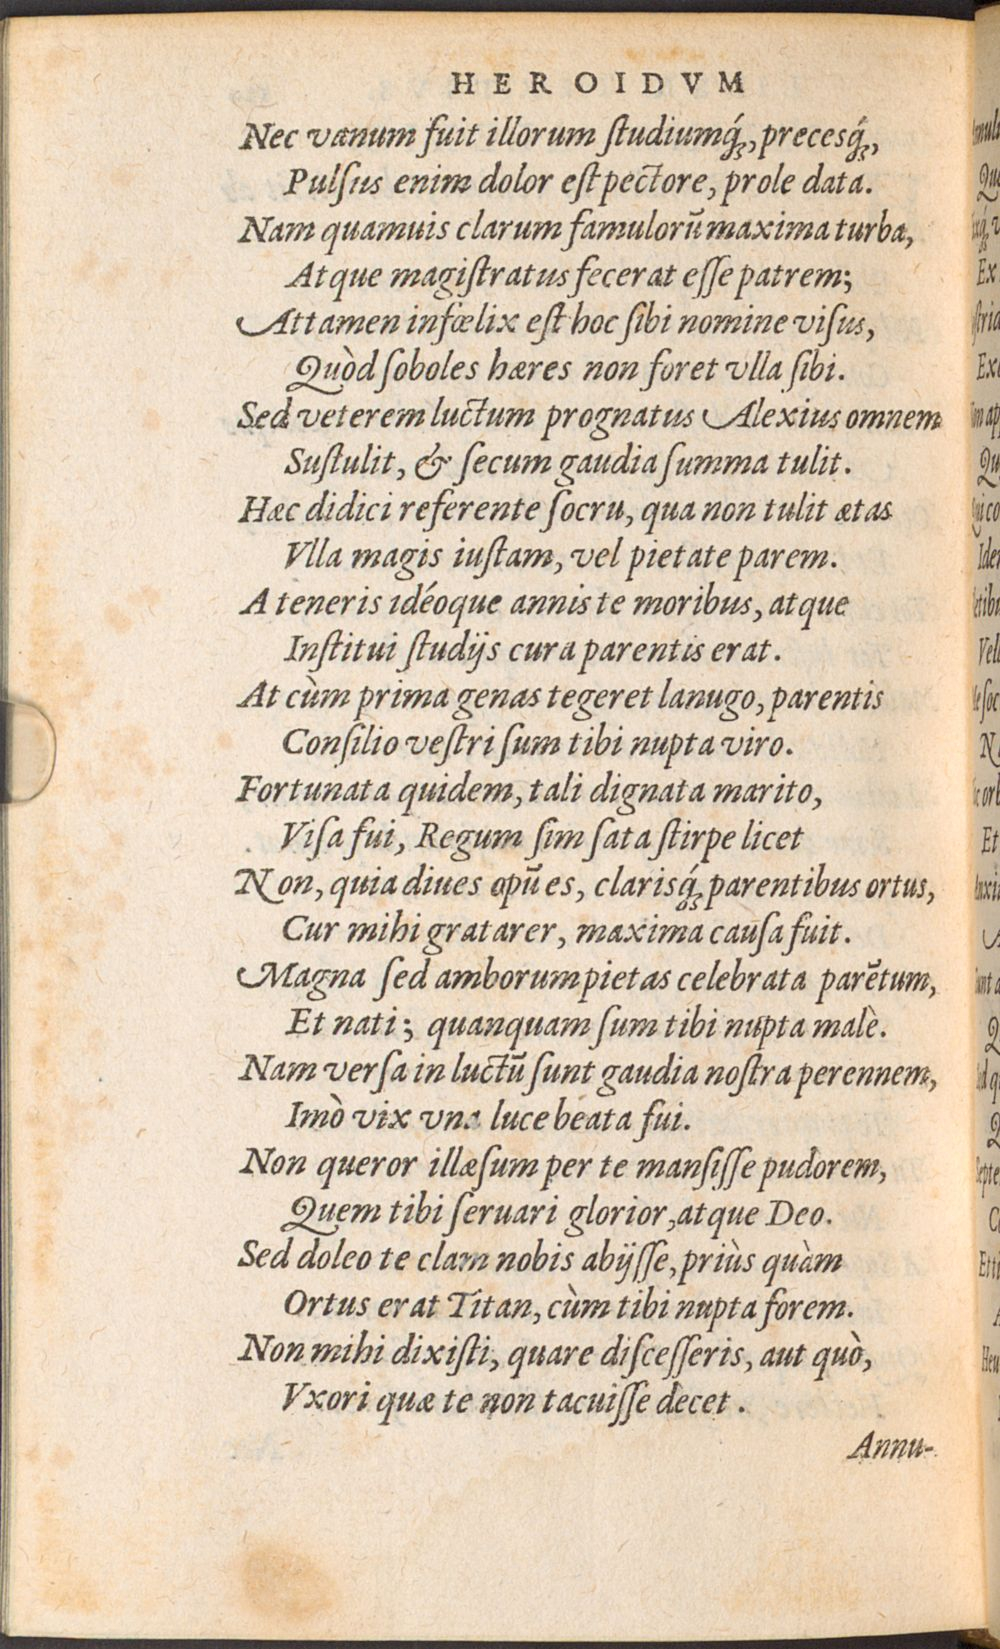 HEROIDVM
Nec vanum fuit illorum ſtudiumq́ꝫ, precesq́ꝫ,
Pulſus enim dolor eſt pectore, prole data.
Nam quamuis clarum famulorū maxima turba,
Atque magiſtratus fecerat eſſe patrem;
Attamen infœlix eſt hoc ſibi nomine viſus,
Quòd ſoboles hæres non foret vlla ſibi.
Sed veterem luctum prognatus Alexius omnem
Suſtulit, & ſecum gaudia ſumma tulit.
Hæc didici referente ſocru, qua non tulit ætas
Vlla magis iuſtam, vel pietate parem.
A teneris idéoque annis te moribus, atque
Inſtitui ſtudijs cura parentis erat.
At cùm prima genas tegeret lanugo, parentis
Conſilio veſtri ſum tibi nupta viro.
Fortunata quidem, tali dignata marito,
Viſa fui, Regum ſim ſata ſtirpe licet
Non, quia diues opū es, clarisq́ꝫ parentibus ortus,
Cur mihi gratarer, maxima cauſa fuit.
Magna ſed amborum pietas celebrata parētum,
Et nati; quanquam ſum tibi nupta malè.
Nam verſa in luctū ſunt gaudia noſtra perennem,
Imò vix vna luce beata fui.
Non queror illæſum per te manſiſſe pudorem,
Quem tibi ſeruari glorior, atque Deo.
Sed doleo te clam nobis abijſſe, priùs quàm
Ortus erat Titan, cùm tibi nupta forem.
Non mihi dixiſti, quare diſceſſeris, aut quò,
Vxori quæ te non tacuiſſe decet.
Annu-